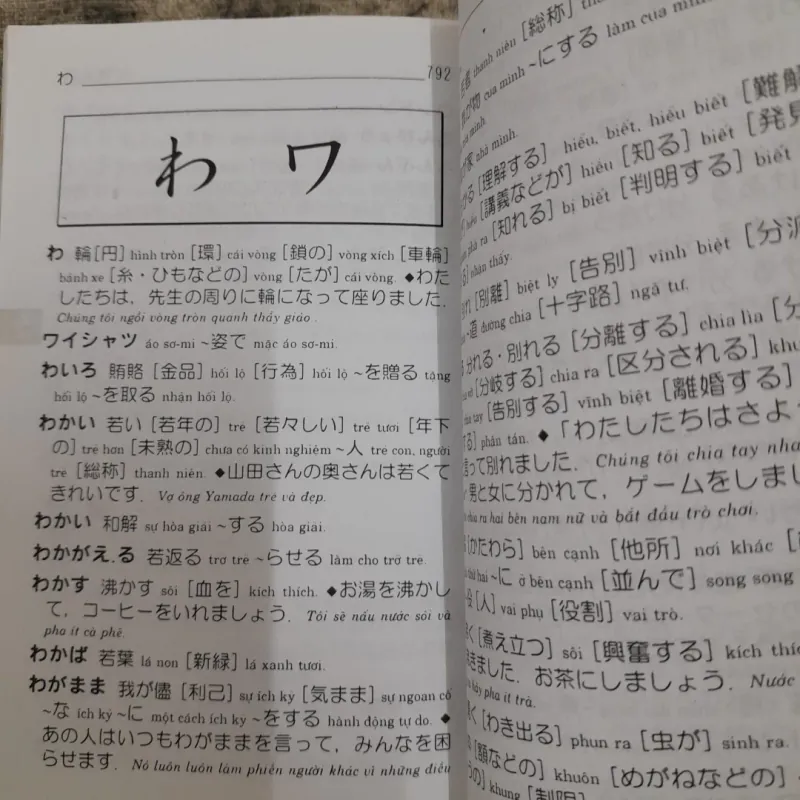 わ 792
わ ワ
わ 輪[円] hình tròn [環] cái vòng [鎖の] vòng xích [車輪]
bánh xe [糸・ひもなどの] vòng [たが] cái vòng. ◆わた
したちは, 先生の周りに輪になって座りました.
Chúng tôi ngồi vòng tròn quanh thầy giáo.
ワイシャツ áo sơ-mi ~姿で mặc áo sơ-mi.
わいろ 賄賂 [金品] hối lộ [行為] hối lộ ~を贈る tặng
hối lộ ~を取る nhận hối lộ.
わかい 若い [若年の] trẻ [若々しい] trẻ tươi [年下
の] trẻ hơn [未熟の] chưa có kinh nghiệm ~人 trẻ con, người
trẻ [総称] thanh niên. ◆山田さんの奥さんは若くて
きれいです. Vợ ông Yamada trẻ và đẹp.
わかい 和解 sự hòa giải ~する hòa giải.
わかがえ.る 若返る trở trẻ ~らせる làm cho trở trẻ.
わかす 沸かす sôi [血を] kích thích. ◆お湯を沸かし
て, コーヒーをいれましょう. Tôi sẽ nấu nước sôi và
pha ít cà phê.
わかば 若葉 lá non [新緑] lá xanh tươi.
わがまま 我が儘 [利己] sự ích kỷ [気まま] sự ngoan cố
~な ích kỷ ~に một cách ích kỷ ~をする hành động tự do. ◆
あの人はいつもわがままを言って, みんなを困
らせます. Nó luôn luôn làm phiền người khác vì những điều
thanh niên [総称]
của mình ~にする làm của mình
nhà mình.
[理解する] hiểu, biết, hiểu biết [難解
[講義などが] hiểu [知る] biết [発見
ra [知れる] bị biết [判明する] biết
nhận thấy.
[別離] biệt ly [告別] vĩnh biệt [分派
道 đường chia [十字路] ngã tư.
分れる・別れる [分離する] chia lìa [分
[分岐する] chia ra [区分される]
chia tay [告別する] vĩnh biệt [離婚する]
する] phân tán. ◆「わたしたちはさよ
言って別れました. Chúng tôi chia tay
男と女に分かれて, ゲームをしまし
chia ra hai bên nam nữ và bắt đầu trò chơi.
[かたわら] bên cạnh [他所] nơi khác
thứ hai ~に ở bên cạnh [並んで] song song
役 [人] vai phụ [役割] vai trò.
く [煮え立つ] sôi [興奮する] kích thíc
きました. お茶にしましょう. Nước
hãy pha ít trà.
く [わき出る] phun ra [虫が] sinh ra.
[額などの] khuôn [めがねなどの]
の] khung [制限]